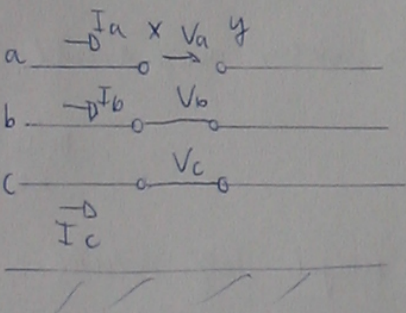 Ia x Va y
a
Ib Vb
b
Vc
c
Ic